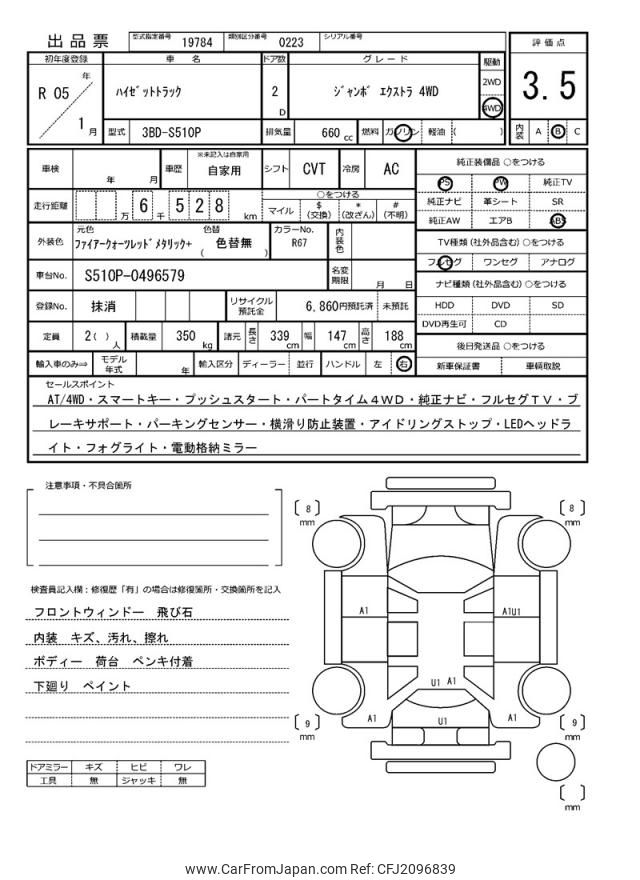 出品票
型式指定番号 19784 類別区分番号 0223 シリアル番号
初年度登録 車名 ドア数 グレード 駆動 評価点
R 05 年 1 月 ハイゼットトラック 2 D ジャンボ エクストラ 4WD 2WD 4WD 3.5
型式 3BD-S510P 排気量 660 cc 燃料 ガソリン 軽油 ( ) 内装 A B C
車検 年 月 車歴 ※未記入は自家用 自家用 シフト CVT 冷房 AC
走行距離 万 6 千 5 2 8 km ○をつける
マイル $(交換) *(改ざん) #(不明)
外装色 元色 ファイアークォーツレッドメタリック+ 色替 ( 色替無 ) カラーNo. R67 内装色
車台No. S510P-0496579 名変期限 月 日
登録No. 抹消 リサイクル預託金 6,860円預託済 未預託
定員 2( )人 積載量 350 kg 諸元 長さ 339 cm 幅 147 cm 高さ 188 cm
輸入車のみ⇒ モデル年式 年 輸入区分 ディーラー 並行 ハンドル 左 右
純正装備品 ○をつける
PS PW 純正TV
純正ナビ 革シート SR
純正AW エアB ABS
TV種類 (社外品含む) ○をつける
フルセグ ワンセグ アナログ
ナビ種類 (社外品含む) ○をつける
HDD DVD SD
DVD再生可 CD
後日発送品 ○をつける
新車保証書 車輌取説
セールスポイント
AT/4WD・スマートキー・プッシュスタート・パートタイム4WD・純正ナビ・フルセグTV・ブ
レーキサポート・パーキングセンサー・横滑り防止装置・アイドリングストップ・LEDヘッドラ
イト・フォグライト・電動格納ミラー
注意事項・不具合箇所
検査員記入欄：修復歴「有」の場合は修復箇所・交換箇所を記入
フロントウィンドー 飛び石
内装 キズ、汚れ、擦れ
ボディー 荷台 ペンキ付着
下廻り ペイント
ドアミラー キズ ヒビ ワレ
工具 無 ジャッキ 無
[ 8 ] mm [ 8 ] mm
A1 A1U1
U1 A1
A1 U1 A1
[ 9 ] mm [ 9 ] mm
[ ] mm
www.CarFromJapan.com Ref: CFJ2096839